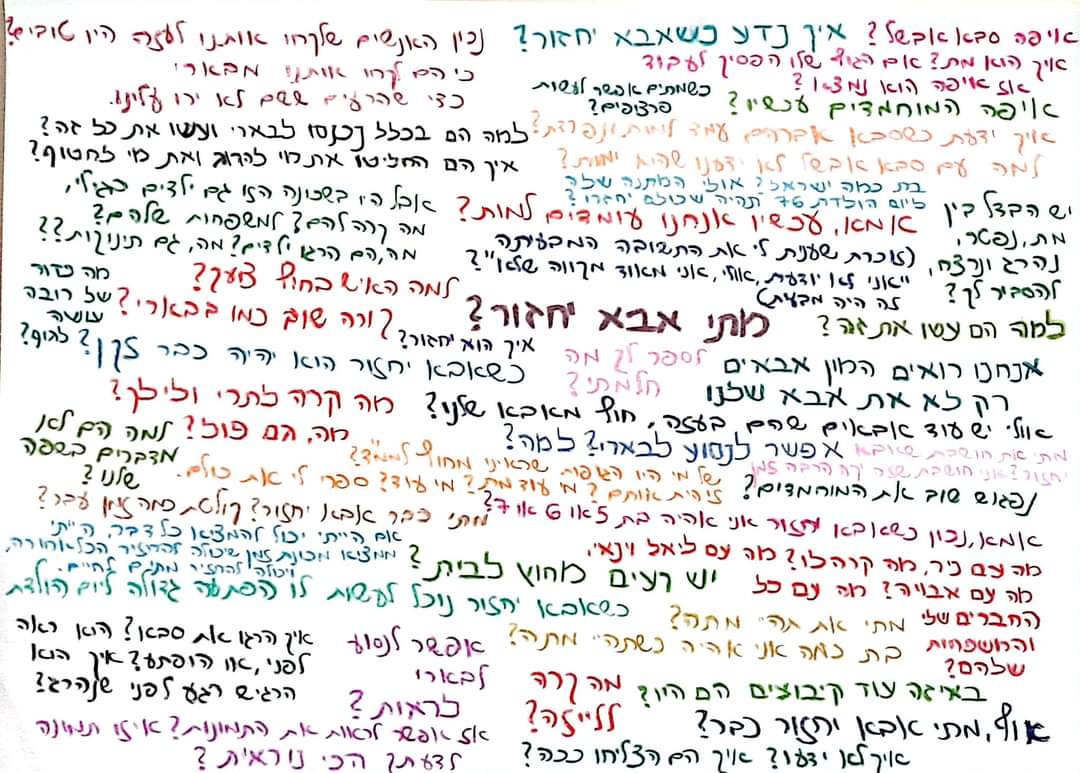 איפה סבא אבשל? איך נדע כשאבא יחזור?
נכון האנשים שלקחו אותנו לעזה היו טובים?
כי הם לקחו אותנו מבארי
כדי שהרעים ששם לא ירו עלינו.
איך הוא מת? אם הגוף שלו הפסיק לעבוד
אז איפה הוא נמצא?
כשמתים אפשר לעשות
פרצופים?
איפה המוחמדים עכשיו?
למה הם בכלל נכנסו לבארי ועשו את כל זה?
איך הם החליטו את מי להרוג ואת מי לחטוף?
איך ידעת כשסבא אברהם עמד למות ונפרדת?
למה עם סבא אבשל לא ידענו שהוא ימות?
בת כמה ישראל? אולי המתנה שלה
ליום הולדת 76 תהיה שכולם יחזרו?
אבל היו בשכונה הזו גם ילדים כגילי,
מה קרה להם? למשפחות שלהם?
מה, הם הרגו ילדים? מה, גם תינוקות??
אמא, עכשיו אנחנו עומדים למות?
(זוכרת שענית לי את התשובה המבעיתה
"אני לא יודעת, אולי, אני מאוד מקווה שלא"?
לה היה מבעית)
יש הבדל בין
מת, נפטר,
נהרג ונרצח,
להסביר לך?
מה כדור
של רובה
עושה
לגוף?
למה האיש בחוץ צועק?
קורה שוב כמו בבארי?
מתי אבא יחזור?
למה הם עשו את זה?
איך הוא יחזור?
כשאבא יחזור הוא יהיה כבר זקן?
לספר לך מה
חלמתי?
אנחנו רואים המון אבאים
רק לא את אבא שלנו
מה קרה לתרי ולילך?
אולי יש עוד אבאים שהם בעזה, חוץ מאבא שלנו?
מה, הם פול? למה הם לא
מדברים בשפה
שלנו?
אפשר לנסוע לבארי? למה?
מתי את חושבת שאבא
יחזור? אני חושבת שזה יקח הרבה זמן
של מי היו הגופות שראינו מחוץ לממ"ד?
זיהית אותם? מי עוד מת? מי עוד? ספרי לי את כולם.
נפגוש שוב את המוחמדים?
מתי כבר אבא יחזור? קולטת כמה זמן עבר?
אמא, נכון כשאבא יחזור אני אהיה בת 5 או 6 או 7?
אם הייתי יכול להמציא כל דבר, הייתי
ממציא מכונת זמן שיכולה להחזיר הכל אחורה,
ויכולה להחזיר מתים לחיים.
יש רעים מחוץ לבית?
מה עם ניר, מה קרה לו? מה עם ליאל וינאי,
מה עם אבויה? מה עם כל
החברים שלי
והמשפחות
שלהם?
כשאבא יחזור נוכל לעשות לו הפתעה גדולה ליום הולדת
מתי את תהיי מתה?
בת כמה אני אהיה כשתהיי מתה?
איך הרגו את סבא? הוא ראה
לפני, או הופתע? איך הוא
הרגיש רגע לפני שנהרג?
אפשר לנסוע
לבארי
לראות?
מה קרה
ללייזה?
באיזה עוד קיבוצים הם היו?
אוף, מתי אבא יחזור כבר?
אז אפשר לראות את התמונות? איזו תמונה
לדעתך הכי נוראית?
איך לא ידעו? איך הם הצליחו ככה?